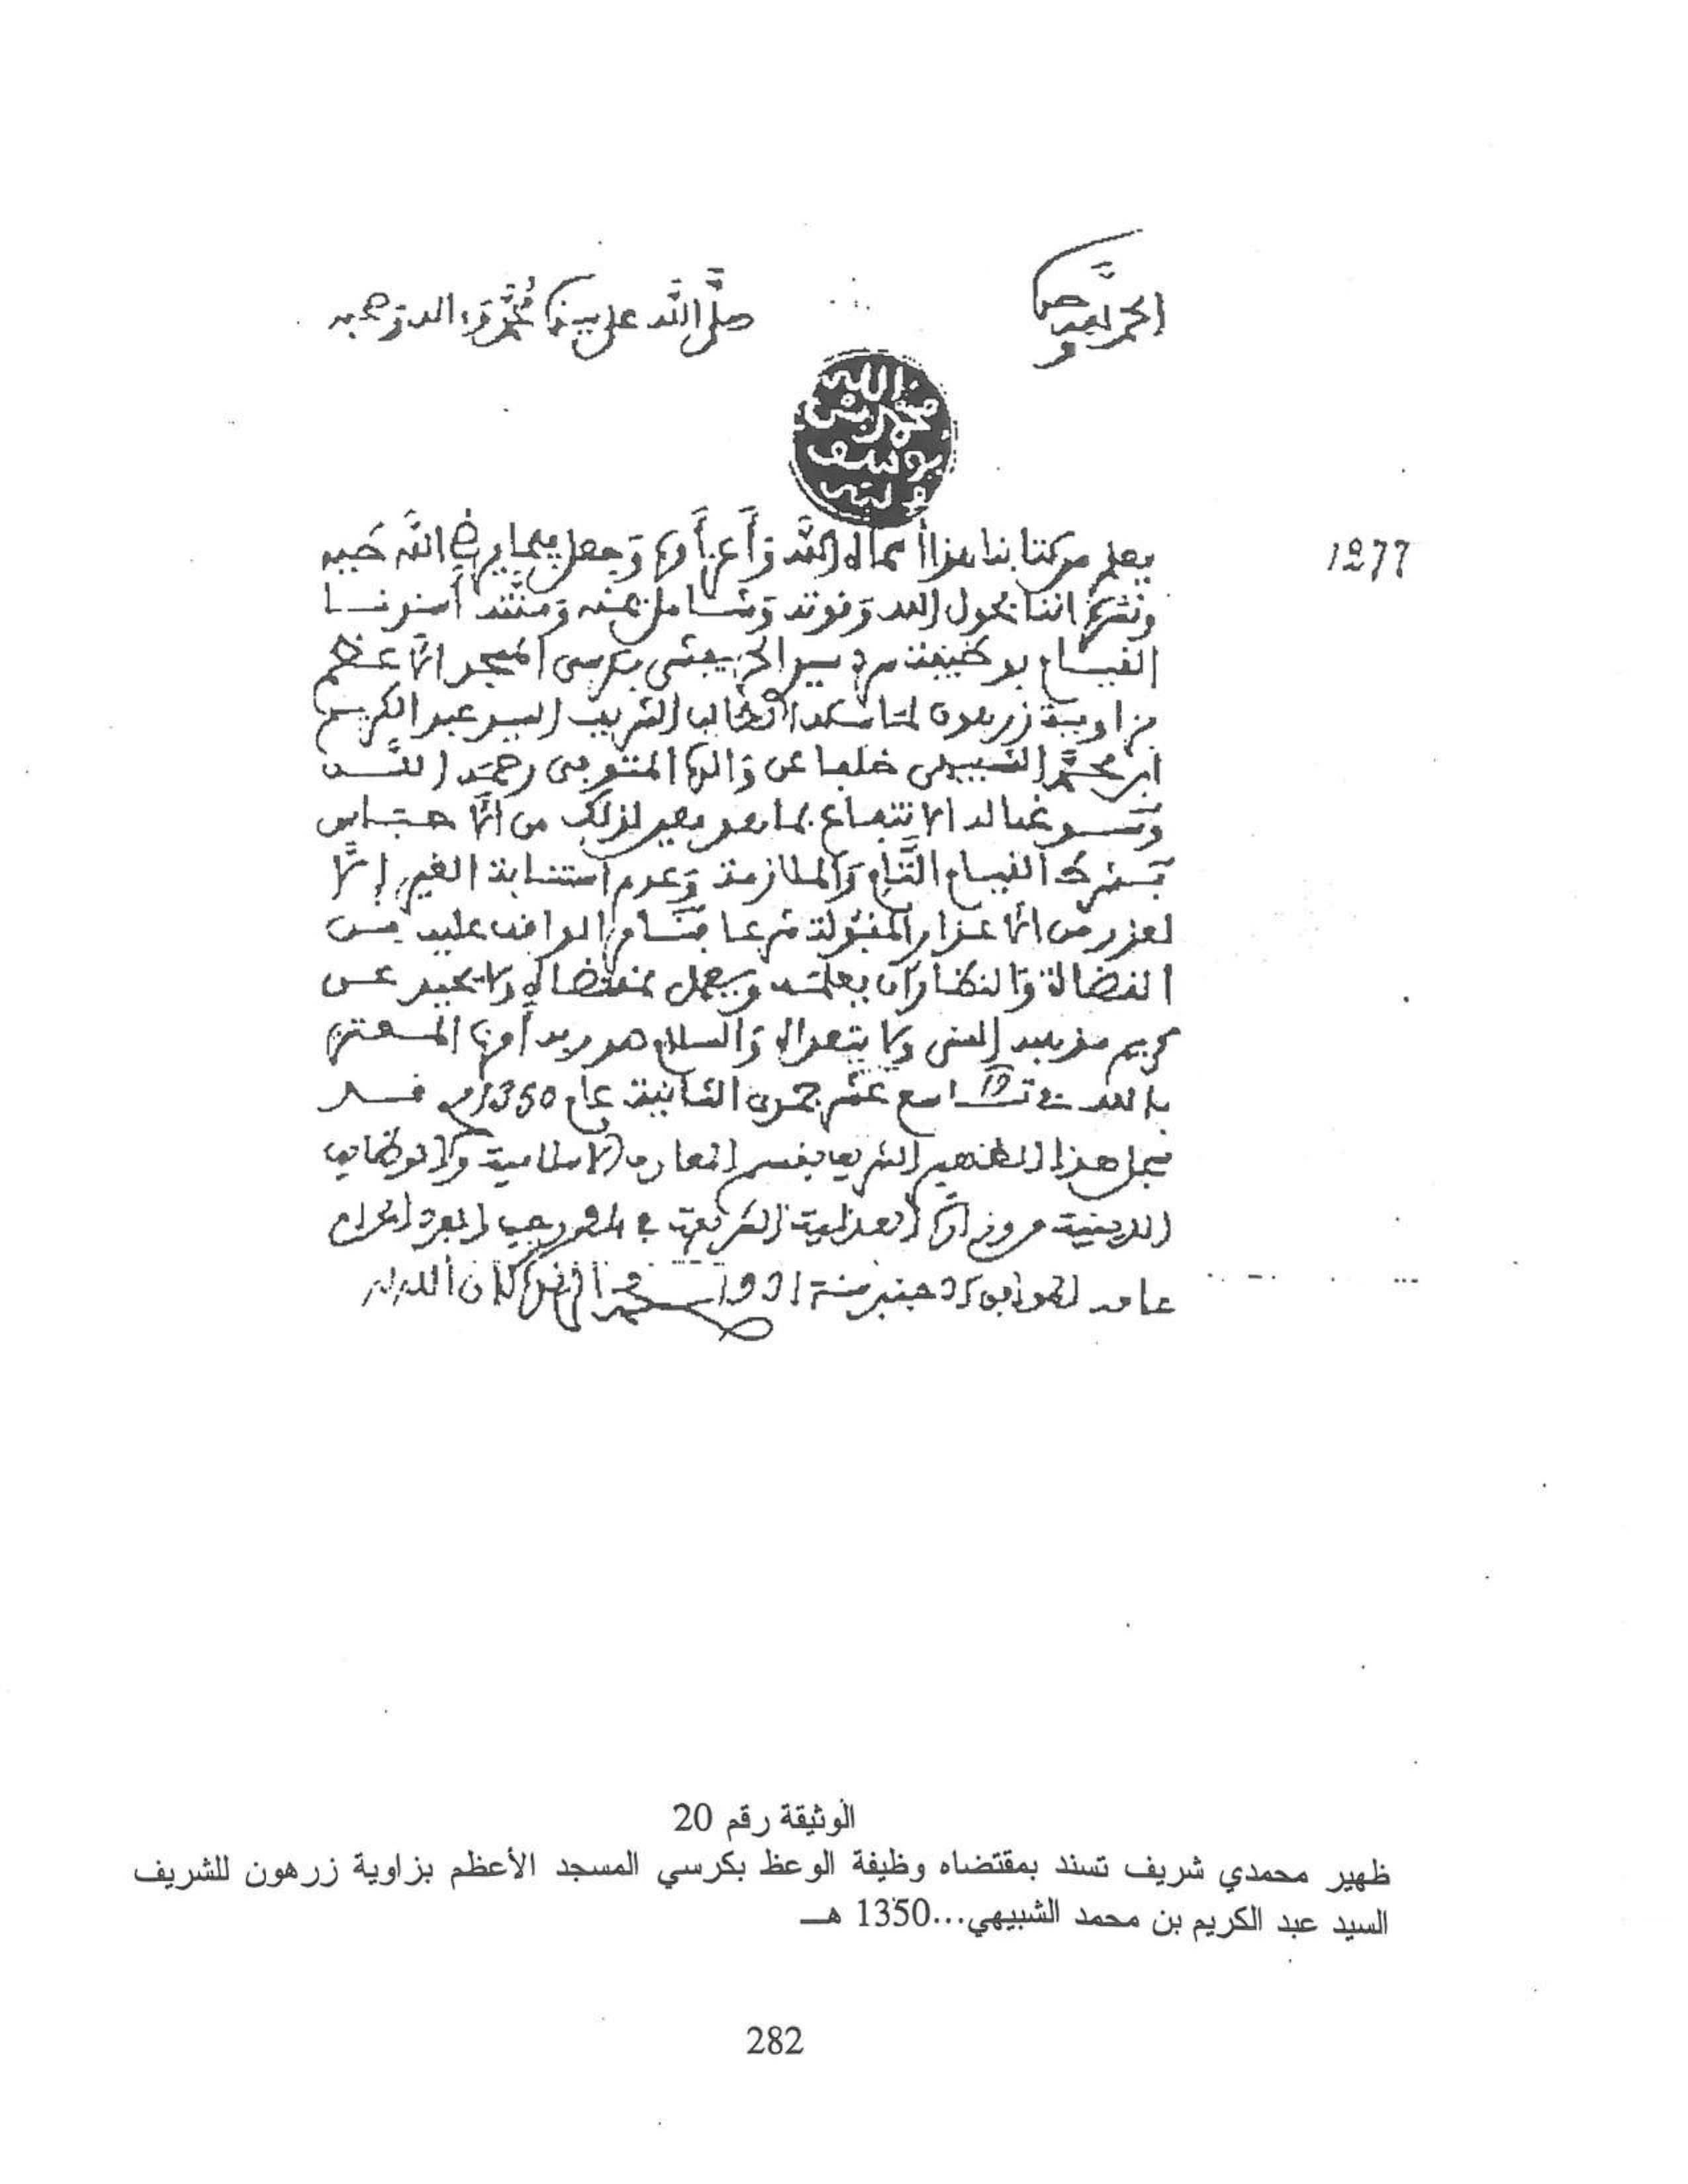 الحمد لله وحده
صلى الله على سيدنا محمد وءاله وصحبه
عبد الله
محمد بن
يوسف
وليه
1277
يعلم من كتابنا هذا أسماه الله وأعز أمره وجعل فيما يرضي الله طيه
ونشره اننا بحول الله وقوته وشامل يمنه ومنته أسندنا
القيام بوظيفة بكرسي المسجد الأعظم
بزاوية زرهون لماسكه الطالب الشريف السيد عبد الكريم
ابن محمد الشبيهي خلفا عن والده المتوفى رحمه الله
وسوغنا له الانتفاع بما هو معين لذلك من الأحباس
بشرط القيام التام والملازمة وعدم استنابة الغير إلا
لعذر من الأعذار المقبولة شرعا فنأمر الواقف عليه من
القضاة والنظار أن يعلمه ويعمل بمقتضاه ولا يحيد عن
كريم مذهبه السني ولا يتعداه والسلام صدر به أمرنا المعتز
بالله في تاسع عشر 19 جمدى الثانية عام 1350 قد
سجل هذا الظهير الشريف بقسم المعارف الاسلامية والوظائف
الدينية من وزارة العدلية الشريفة في رجب الفرد الحرام
عامه الموافق دجنبر سنة 1931 كان الله له
الوثيقة رقم 20
ظهير محمدي شريف تسند بمقتضاه وظيفة الوعظ بكرسي المسجد الأعظم بزاوية زرهون للشريف
السيد عبد الكريم بن محمد الشبيهي...1350 هـ
282